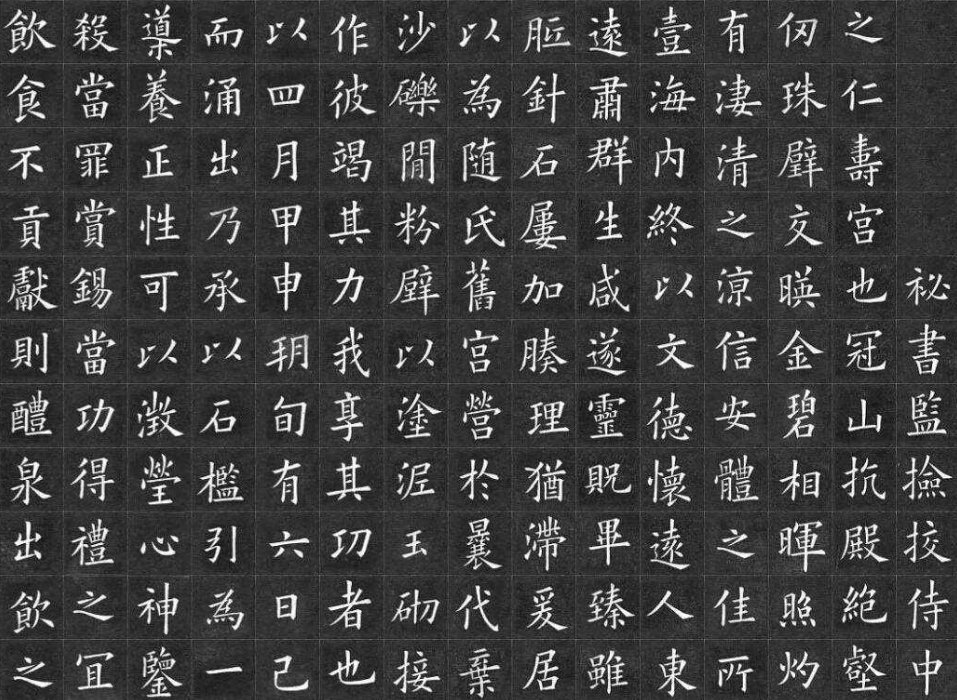 祕書監撿挍侍中
之仁壽宮也冠山抗殿絕壑
仞珠璧交暎金碧相暉照灼
有淒清之涼信安體之佳所
壹海內終以文德懷遠人東
遠肅群生咸遂靈貺畢臻雖
胝針石屢加腠理猶滯爰居
以為随氏舊宮營於曩代棄
沙礫閒粉壁以塗泥玉砌接
作彼竭其力我享其功者也
以四月甲申朔旬有六日己
而涌出乃承以石檻引為一
導養正性可以澂瑩心神鑒
殺當罪賞錫當功得禮之宜
飲食不貢獻則醴泉出飲之